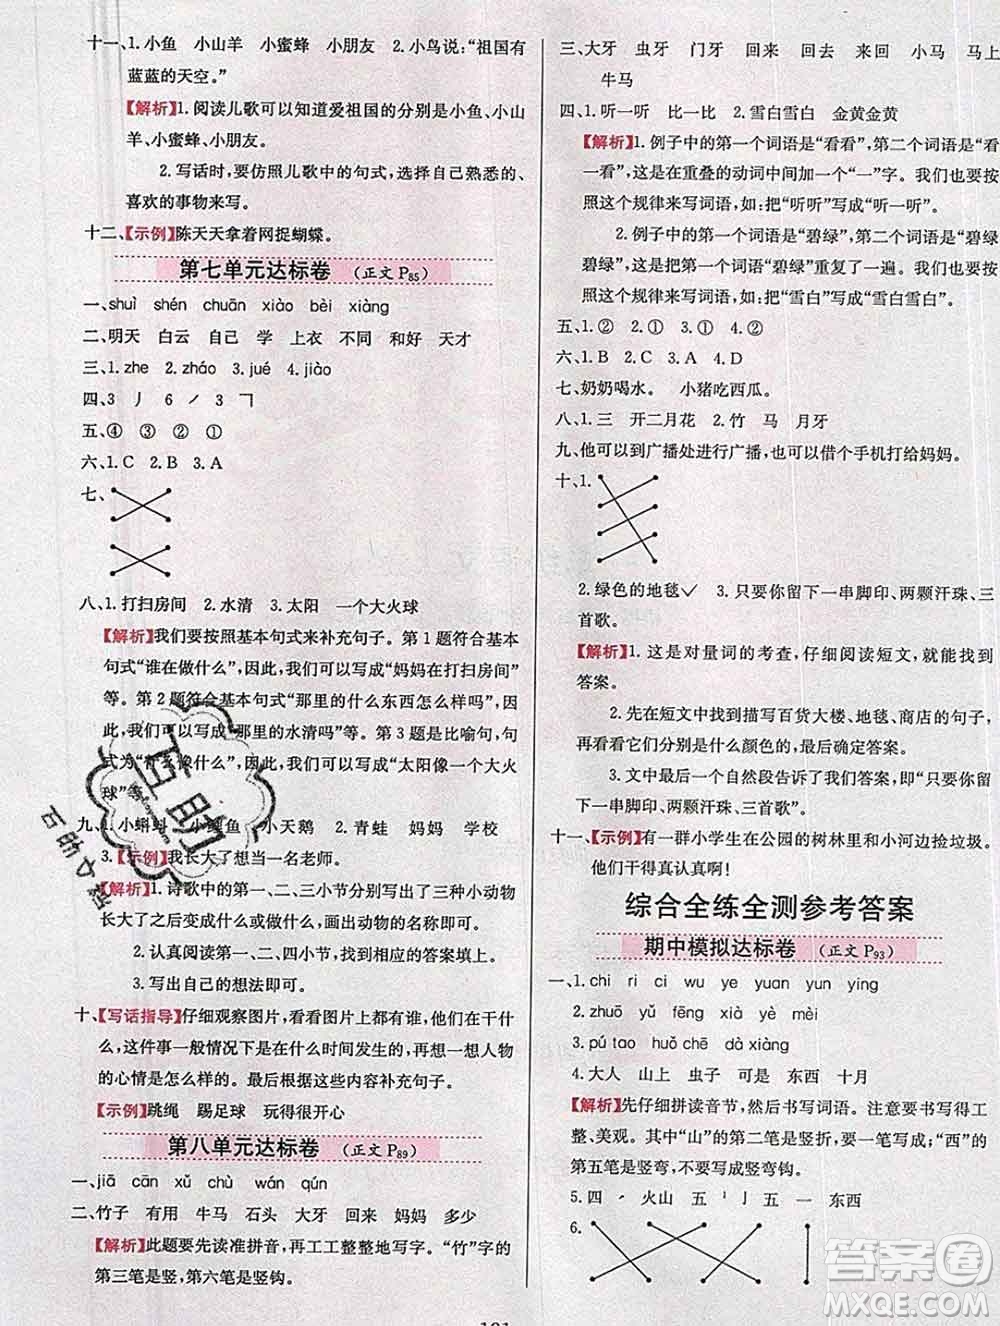 十一、1.小鱼 小山羊 小蜜蜂 小朋友 2.小鸟说：“祖国有
蓝蓝的天空。”
【解析】1.阅读儿歌可以知道爱祖国的分别是小鱼、小山
羊、小蜜蜂、小朋友。
2.写话时，要仿照儿歌中的句式，选择自己熟悉的、
喜欢的事物来写。
十二、【示例】陈天天拿着网捉蝴蝶。
第七单元达标卷 （正文P85）
一、shuì shén chuān xiào bèi xiàng
二、明天 白云 自己 学 上衣 不同 和好 天才
三、1.zhe 2.zháo 3.jué 4.jiào
四、3 丿 6 ㇒ 3 ㇕
五、④ ④ ② ① ①
六、1.C 2.B 3.A
七、
八、1.打扫房间 2.水清 3.太阳 一个大火球
【解析】我们要按照基本句式来补充句子。第1题符合基本
句式“谁在做什么”，因此，我们可以写成“妈妈在打扫房间”
等。第2题符合基本句式“那里的什么东西怎么样吗”，因
此，我们可以写成“那里的水清吗”等。第3题是比喻句，句
式为“什么像什么”，因此，我们可以写成“太阳像一个大火
球”等。
九、1.小蝌蚪 小鳄鱼 小天鹅 2.青蛙 妈妈 学校
3.【示例】我长大了想当一名老师。
【解析】1.诗歌中的第一、二、三小节分别写出了三种小动物
长大了之后变成什么或做什么，画出动物的名称即可。
2.认真阅读第一、二、四小节，找到相应的答案填空。
3.写出自己的想法即可。
十、【写话指导】仔细观察图片，看看图片上都有谁，他们在干什
么，这件事一般情况下是在什么时间发生的，再想一想人物
的心情是怎么样的。最后根据这些内容补充句子。
【示例】跳绳 踢足球 玩得很开心
第八单元达标卷 （正文P89）
一、jiā cān xǔ chù wán qún
二、竹子 有用 牛马 石头 大牙 回来 妈妈 多少
【解析】此题要先读准拼音，再工工整整地写字。“竹”字的
第三笔是竖，第六笔是竖钩。
三、大牙 虫牙 门牙 回来 回去 来回 小马 马上
牛马
四、1.听一听 比一比 2.雪白雪白 金黄金黄
【解析】1.例子中的第一个词语是“看看”，第二个词语是“看
一看”，这是在重叠的动词中间加一个“一”字。我们也要按
照这个规律来写词语，如：把“听听”写成“听一听”。
2.例子中的第一个词语是“碧绿”，第二个词语是“碧绿
碧绿”，这是把第一个词语“碧绿”重复了一遍。我们也要按
照这个规律来写词语，如：把“雪白”写成“雪白雪白”。
五、1.② 2.① 3.① 4.②
六、1.B 2.C 3.A 4.D
七、奶奶喝水。 小猪吃西瓜。
八、1.三 开二月花 2.竹 马 月牙
九、他可以到广播处进行广播，也可以借个手机打给妈妈。
十、1.
2.绿色的地毯✓ 3.只要你留下一串脚印、两颗汗珠、三
首歌。
【解析】1.这是对量词的考查，仔细阅读短文，就能找到
答案。
2.先在短文中找到描写百货大楼、地毯、商店的句子，
再看看它们分别是什么颜色的，最后确定答案。
3.文中最后一个自然段告诉了我们答案，即“只要你留
下一串脚印、两颗汗珠、三首歌”。
十一、【示例】有一群小学生在公园的树林里和小河边捡垃圾。
他们干得真认真啊！
综合全练全测参考答案
期中模拟达标卷 （正文P93）
一、1.chi ri ci wu ye yuan yun ying
2.zhuō yǔ fēng xià yè mèi
3.pú tao huǒ chē dà xiàng
4.大人 山上 虫子 可是 东西 十月
【解析】先仔细拼读音节，然后书写词语。注意要写得工
整、美观。其中“山”的第二笔是竖折，要一笔写成；“西”的
第五笔是竖弯，不要写成竖弯钩。
5.四 ㇒ 火山 五 亅 五 一 东西
6.
互助
答案圈
MXQE.COM